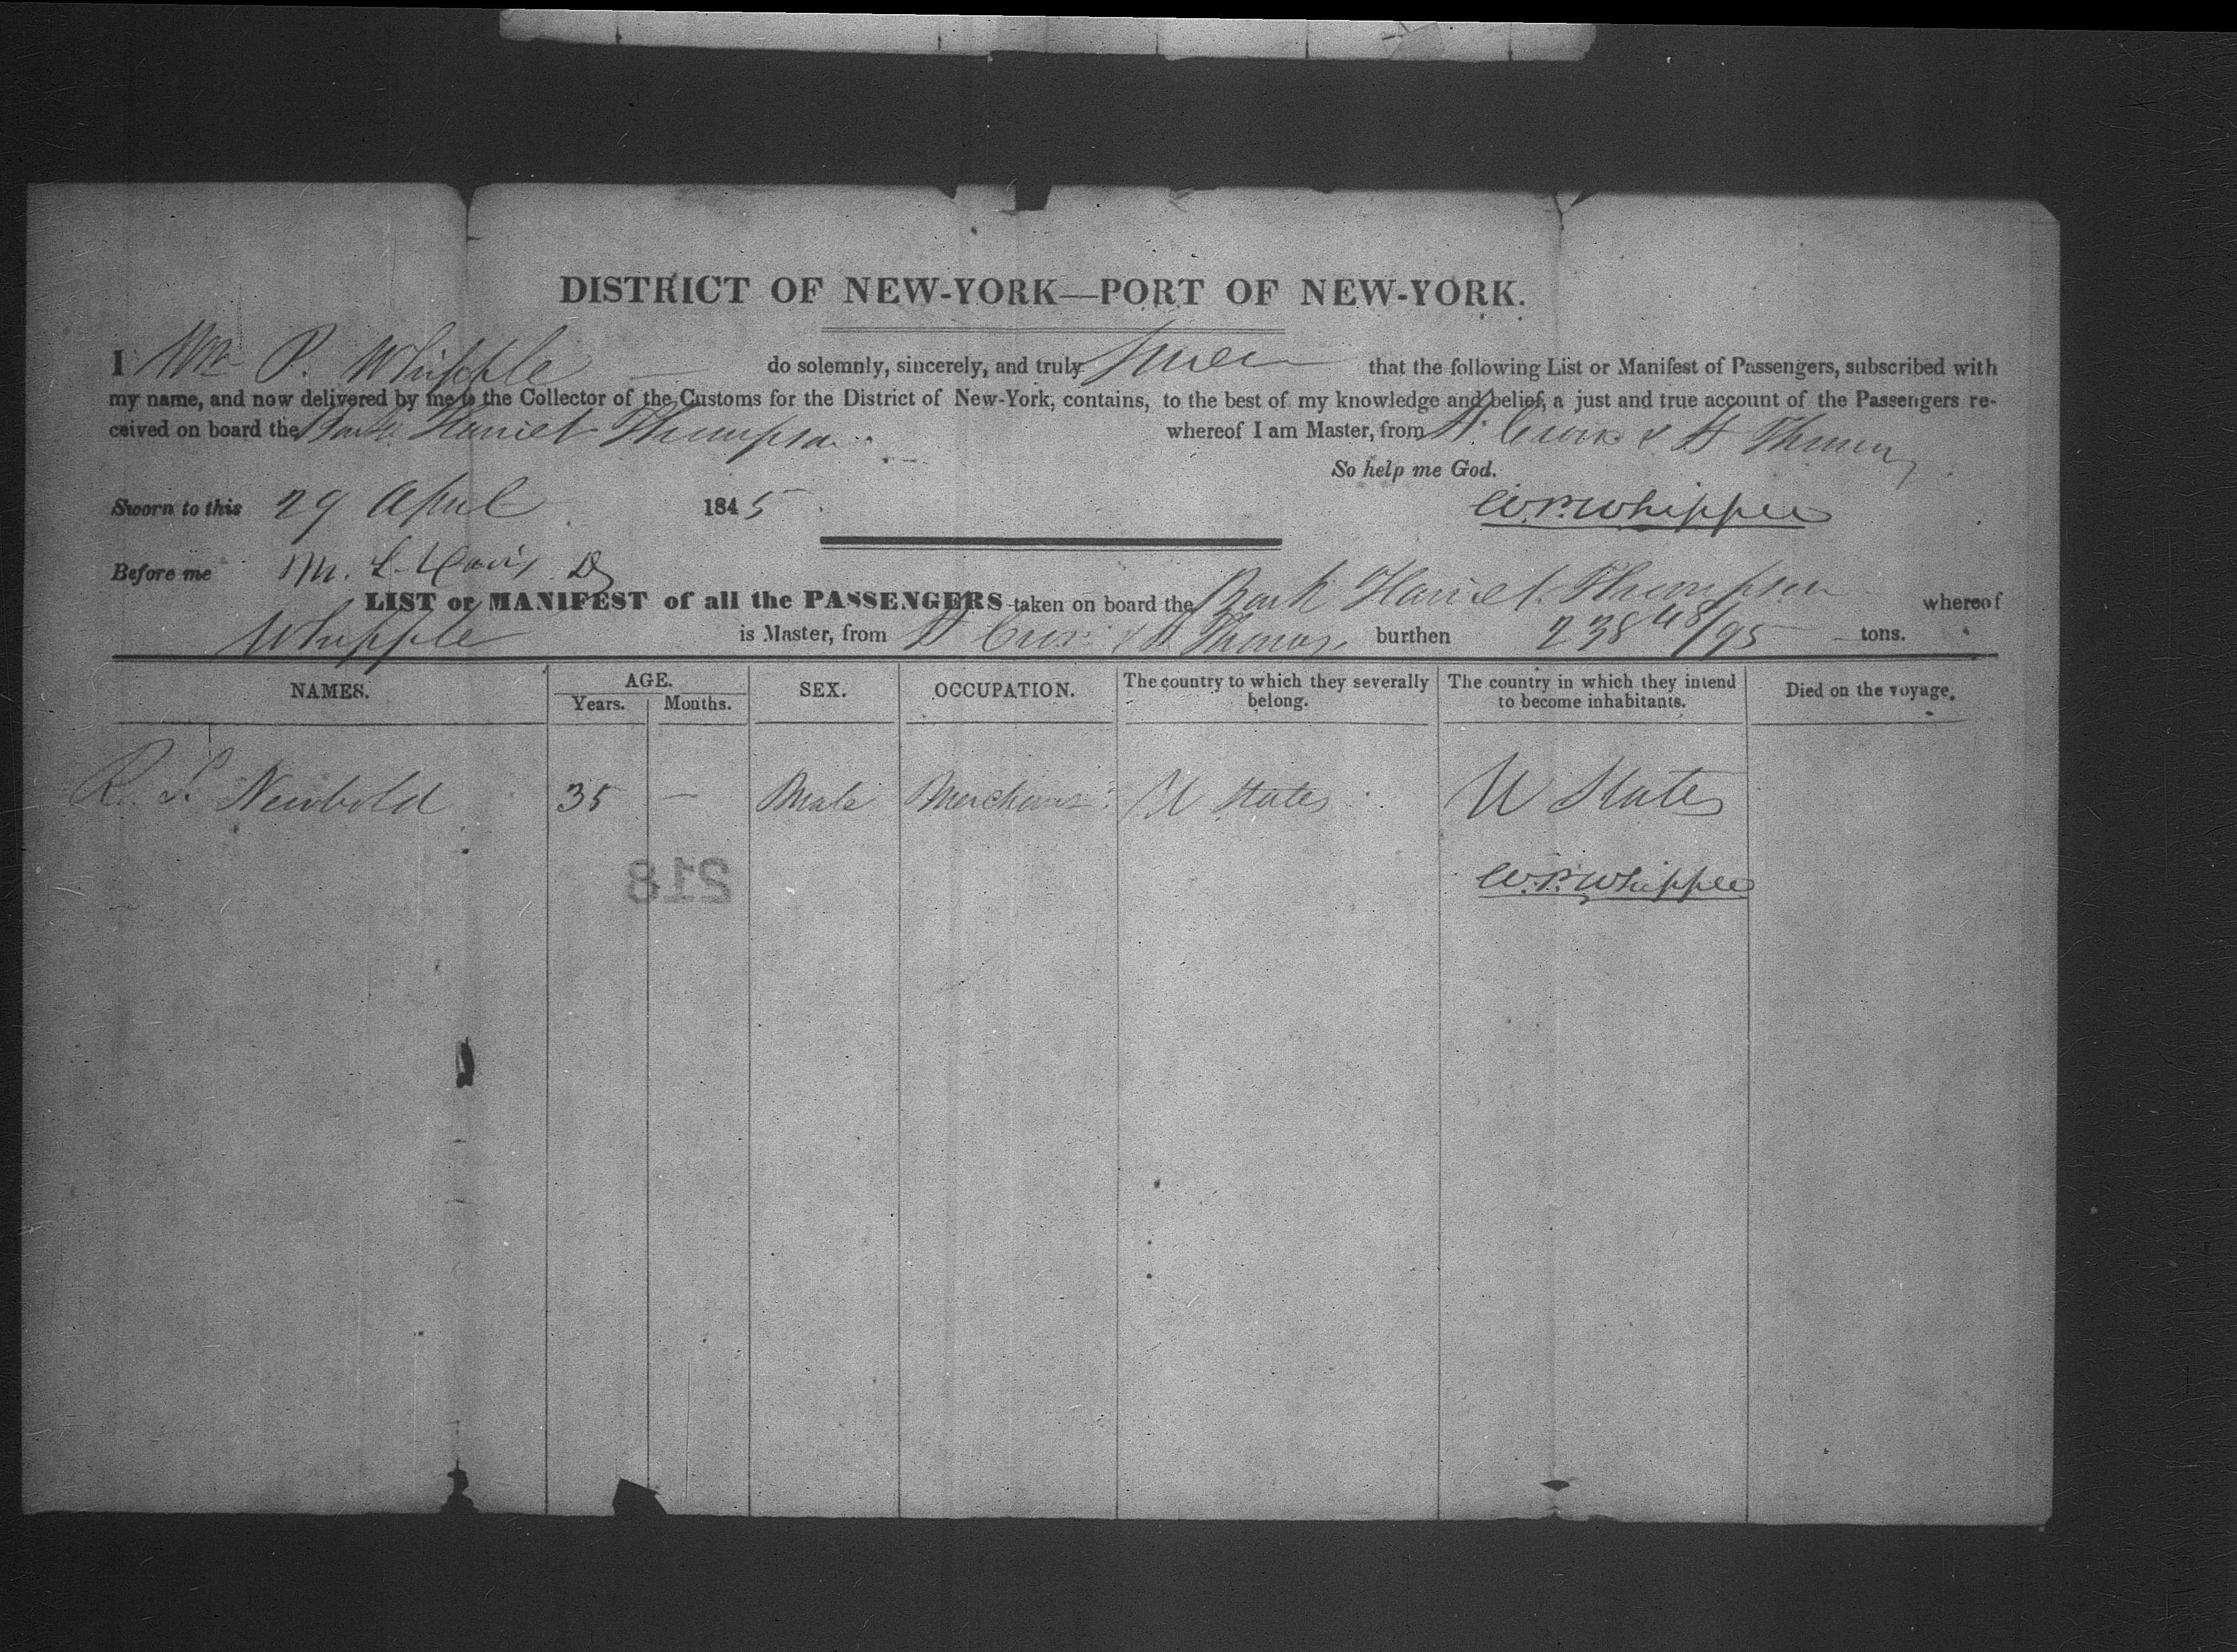 DISTRICT OF NEW-YORK—PORT OF NEW-YORK.
I Wm P. Whipple do solemnly, sincerely, and truly swear that the following List or Manifest of Passengers, subscribed with
my name, and now delivered by me to the Collector of the Customs for the District of New-York, contains, to the best of my knowledge and belief, a just and true account of the Passengers re-
ceived on board the Bark Harriet Thompson whereof I am Master, from St Croix & St Thomas
So help me God.
Sworn to this 29 April 1845 W.P. Whipple
Before me M. L. Davis
LIST or MANIFEST of all the PASSENGERS taken on board the Bark Harriet Thompson whereof
Whipple is Master, from St Croix & St Thomas, burthen 238 48/95 tons.
NAMES. AGE. SEX. OCCUPATION. The country to which they severally belong. The country in which they intend to become inhabitants. Died on the voyage.
Years. Months.
R. S. Newbold 35 — Male Merchant U States U States
218
W.P. Whipple